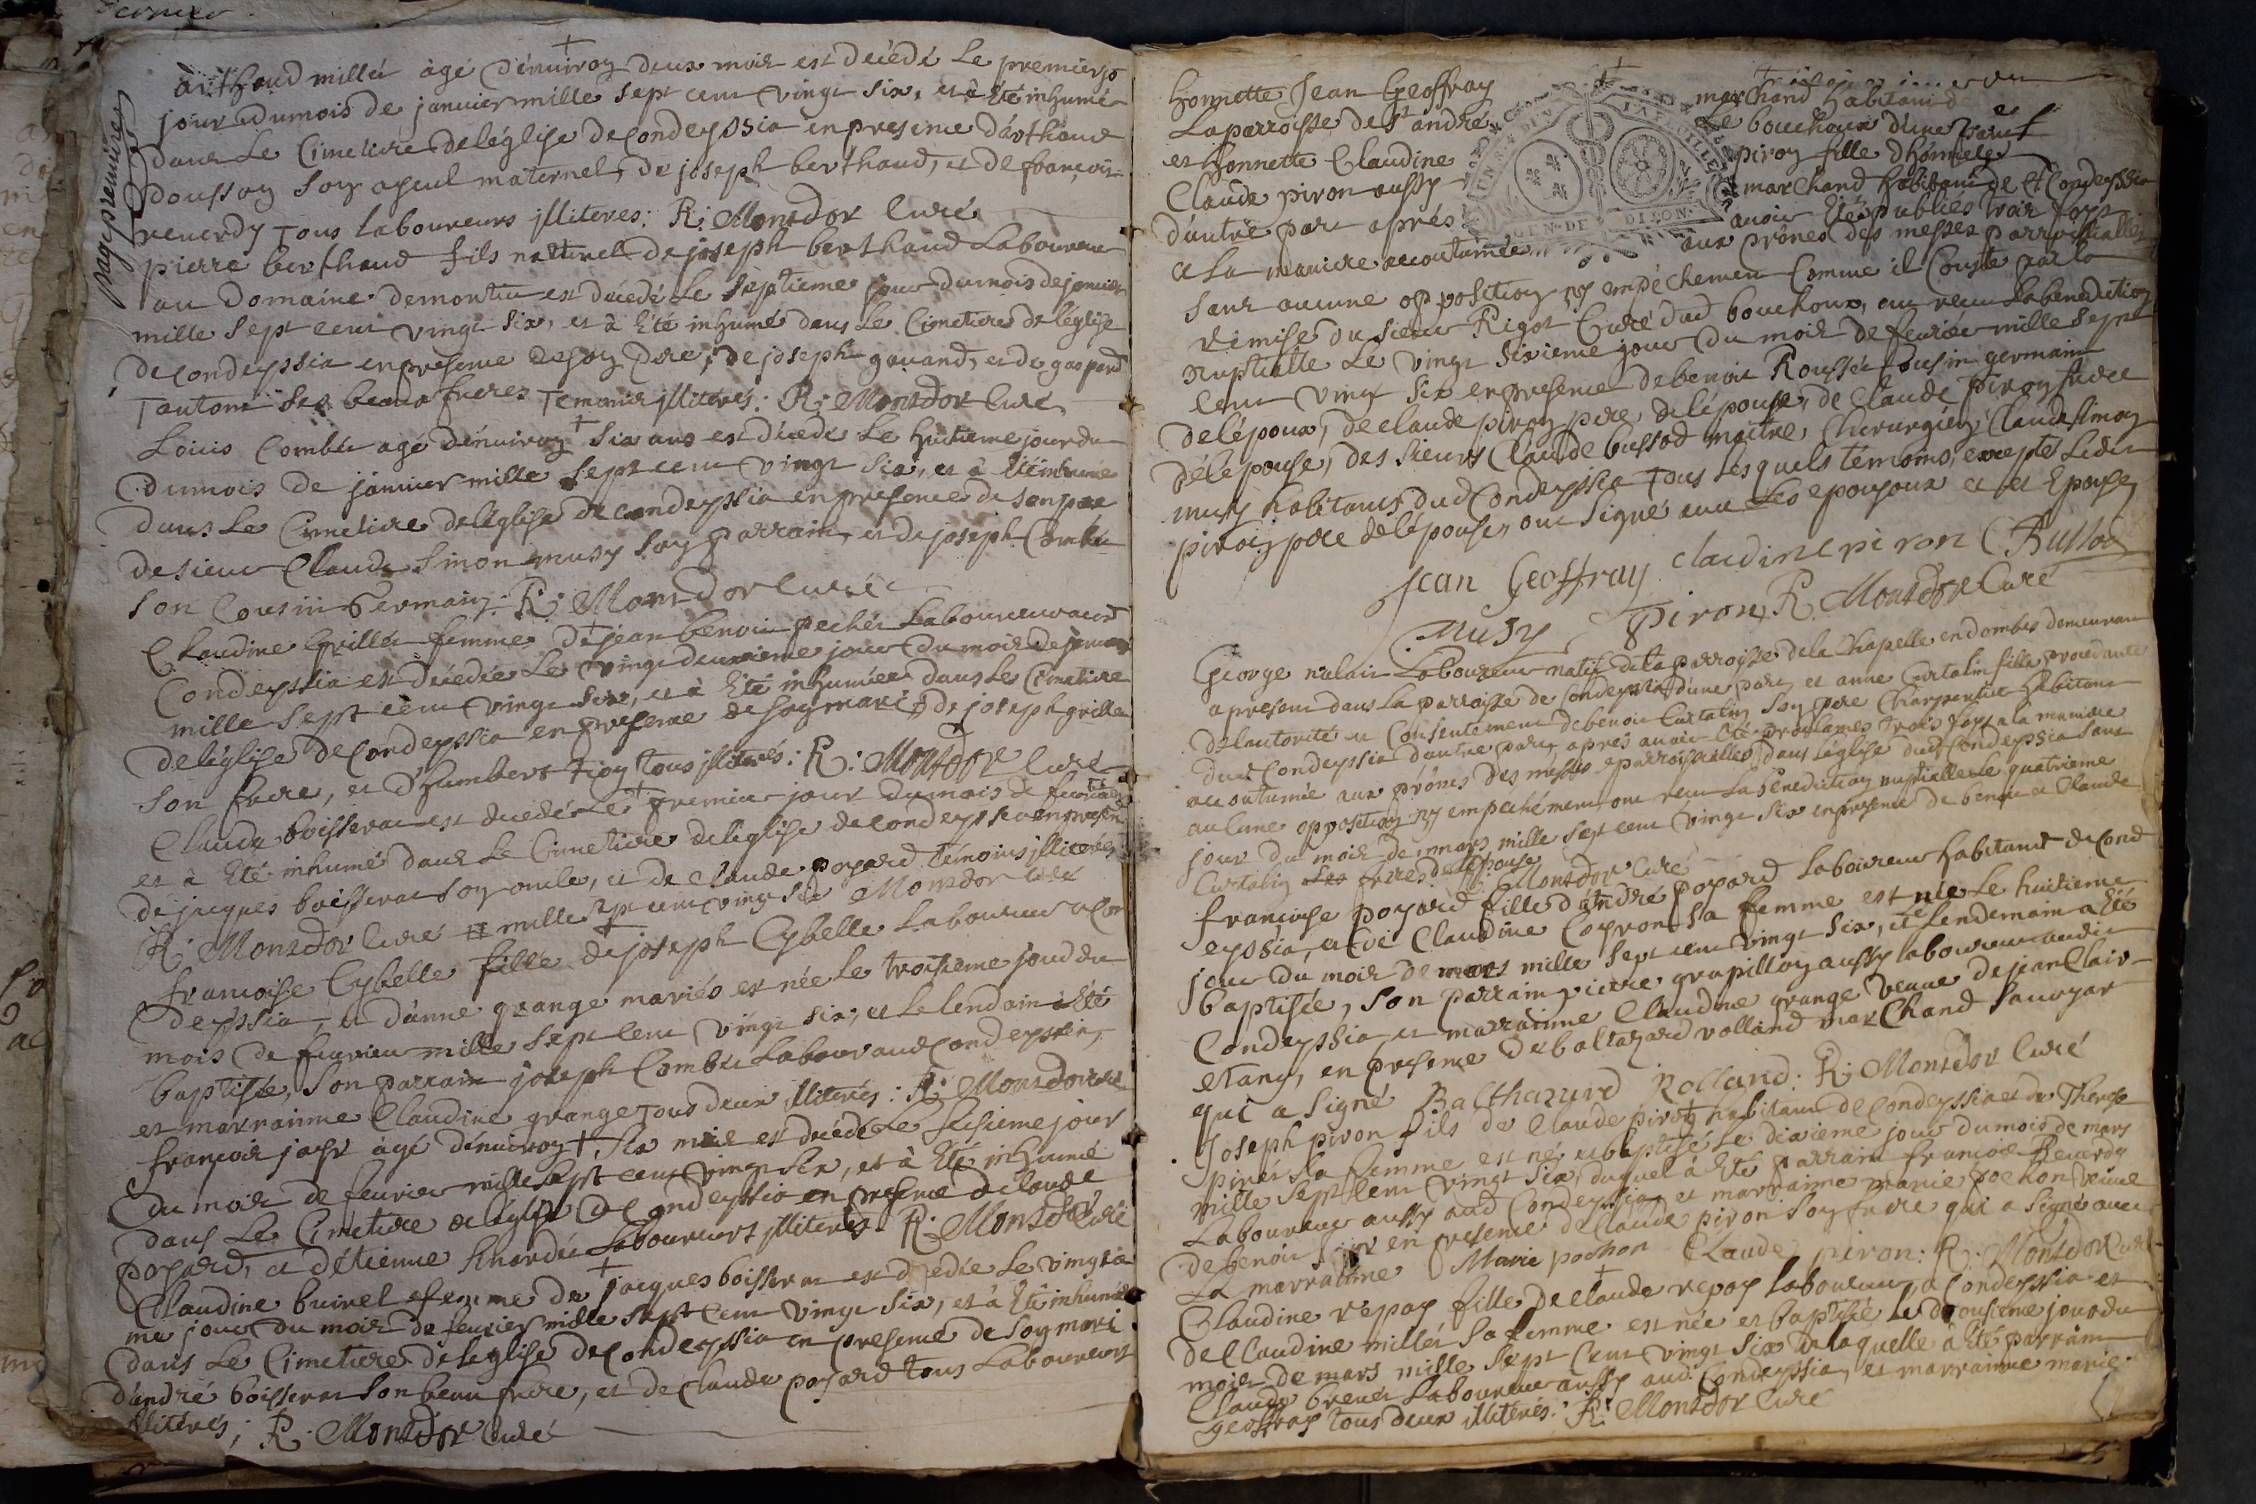 page premiere
arthaud millet àgé d'énuiron deux mois est décédé Le premier
jour du mois de januier mille sept cent vingt six, et à été inhumé
dans Le Cimetiere de l'églisse de Condeyssia en presence d'arthaud
doussoy son ayeul maternel, de joseph berthaud, et de françois
reuerdy tous laboureurs illiteres: R: Monsdor Curé
pierre berthaud fils naturel de joseph berthaud Laboureur
au domaine de est décédé Le septieme jour du mois de januier
mille sept cent vingt six, et à été inhumé dans Le Cimetiere de l'église
de Condeyssia en presence de son pere, de joseph gouand, et de gaspard
ses beaux freres temoins illiterés: R: Monsdor Curé
Louis Combet agé d'énuiron six ans est décédé Le huitieme jour du
du mois de januier mille sept cent vingt six, et à été inhumé
dans Le Cimetiere de l'église de Condeyssia en presence de son pere
de sieur Claude Simon musy son parrain, et de joseph Combet
son Cousin Germain: R: Monsdor Curé
Claudine Grillet femme de jean benoit pechet Laboureur audt
Condeyssia est décédée Le vingt deuxieme jour du mois de januier
mille sept cent vingt six, et à été inhumée dans Le Cimetiere
de l'église de Condeyssia en presence de son mari, de joseph grillet
son frere, et d'humbert tous illiterés: R: Monsdor Curé
Claude boisserat est decedé Le premier jour du mois de feurier
et à été inhumé dans Le Cimetiere de l'église de Condeyssia en presence
de jacques boisserat son oncle, et de Claude poyard témoins illiterés
R: Monsdor Curé mille sept cent vingt six Monsdor Curé
francoise Cybelle fille de joseph Cybelle Laboureur a Con
deyssia, et d'anne grange mariés est née Le troisieme jour du
mois de feurier mille sept cent vingt six, et Le lendemain à été
baptisée, son parrain joseph Combet Laboureur aud Condeyssia,
et marrainne Claudine grange tous deux illiterés: R: Monsdor Curé
françois jayr àgé d'énuiron six mois est décédé Le sixieme jour
du mois de feurier mille sept cent vingt six, et à été inhumé
dans Le Cimetiere de l'église de Condeyssia en presence de Claude
poyard, et d'étienne Laboureurs illiterés. R: Monsdor Curé
Claudine buirel femme de jacques boisserat est décédée Le vingtié
me jour du mois de feurier mille sept cent vingt six, et à été inhumée
dans Le Cimetiere de l'eglise de Condeyssia en presence de son mari
d'andré boisserat son beau frere, et de Claude poyard tous Laboureurs
illiterés; R: Monsdor Curé
honnette Jean Geoffray marchand habitant d
La parroisse de st andré Le bouchoux d'une part
et honnette Claudine piron fille d'honnete
Claude piron aussy marchand habitant de Condeyssia
d'autre part aprés auoir été publiés trois foys
a La maniere accoutumée aux prônes des messes parroissialles
GEN· DE DIJON·
sans aucune opposition ny empêchement Comme il Conste par la
remise du sieur Rigot Curé dud bouchoux, ont reçu La benediction
nuptialle Le vingt sixieme jour du mois de feurier mille sept
cent vingt six en presence de benoit Rousset Cousin germain
de l'époux, de Claude piron pere, de l'épouse, de Claude piron frere
de l'épouse, des sieurs Claude bussod maitre, Chirurgien, Claude simon
musy habitants dud Condeyssia tous Lesquels témoins, excepté Ledit
piron pere de l'épouse, ont signé auec Les epouyoux
Jean Geoffray Claudine piron C Bussod
Musy Piron R: Monsdor Curé
George nalais Laboureur natif de la parroisse de la Chapelle en dombes demeurant
a present dans La parroisse de Condeyssia d'une part, et anne Curtalin fille procedante
de l'autorité et Consentement de benoit Curtalin son pere Charpentier habitant
dud Condeyssia d'autre part, aprés auoir été proclamés trois foys a la maniere
accoutumée aux prônes des messes parroissialles dans l'église dud Condeyssia sans
aulcune opposition ny empechement ont reçu La benediction nuptialle Le quatrieme
jour du mois de mars mille sept cent vingt six en presence de benoit et Claude
Curtalin freres de l'épouse Monsdor Curé
françoise poyard fille d'andré poyard Laboureur habitant de Cond
eyssia, et de Claudine Copron sa femme est née Le huitieme
jour du mois de mars mille sept cent vingt six, et Le lendemain a été
baptisée, son parrain pierre grapillon aussy laboureur audit
Condeyssia, et marrainne Claudine grange veuue de jean Clair
etang, en presence de baltazard rolland marchand sauoyar
qui a signé Balthazard Rolland: R: Monsdor Curé
Joseph piron fils de Claude piron habitant de Condeyssia et de Therese
sa femme est né, et baptisé Le dixieme jour du mois de mars
mille sept cent vingt six, duquel à été parrain françois Reuerdy
Laboureur aussy aud Condeyssia, et marrainne marie pochon veuue
de benoit en presence de Claude piron son frere qui a signé auec
La marrainne Marie pochon Claude piron: R: Monsdor Curé
Claudine repay fille de Claude repay Laboureur a Condeyssia et
de Claudine millet sa femme est née et baptisée Le douzieme jour du
mois de mars mille sept cent vingt six de laquelle à été parrain
Claude breuet Laboureur aussy aud: Condeyssia, et marrainne marie
geoffray tous deux illiterés: R: Monsdor Curé